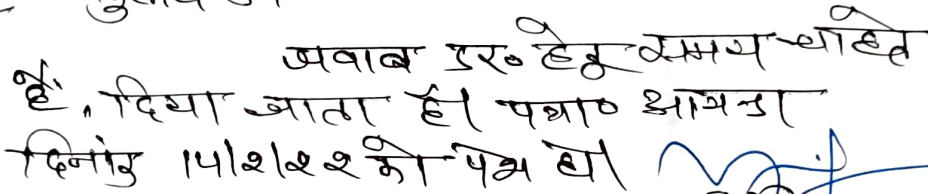 जवाब हेतु समय चाहते
हैं, दिया जाता है। पत्रा० आगला
दिनांक 14/2/22 को पेश हो।